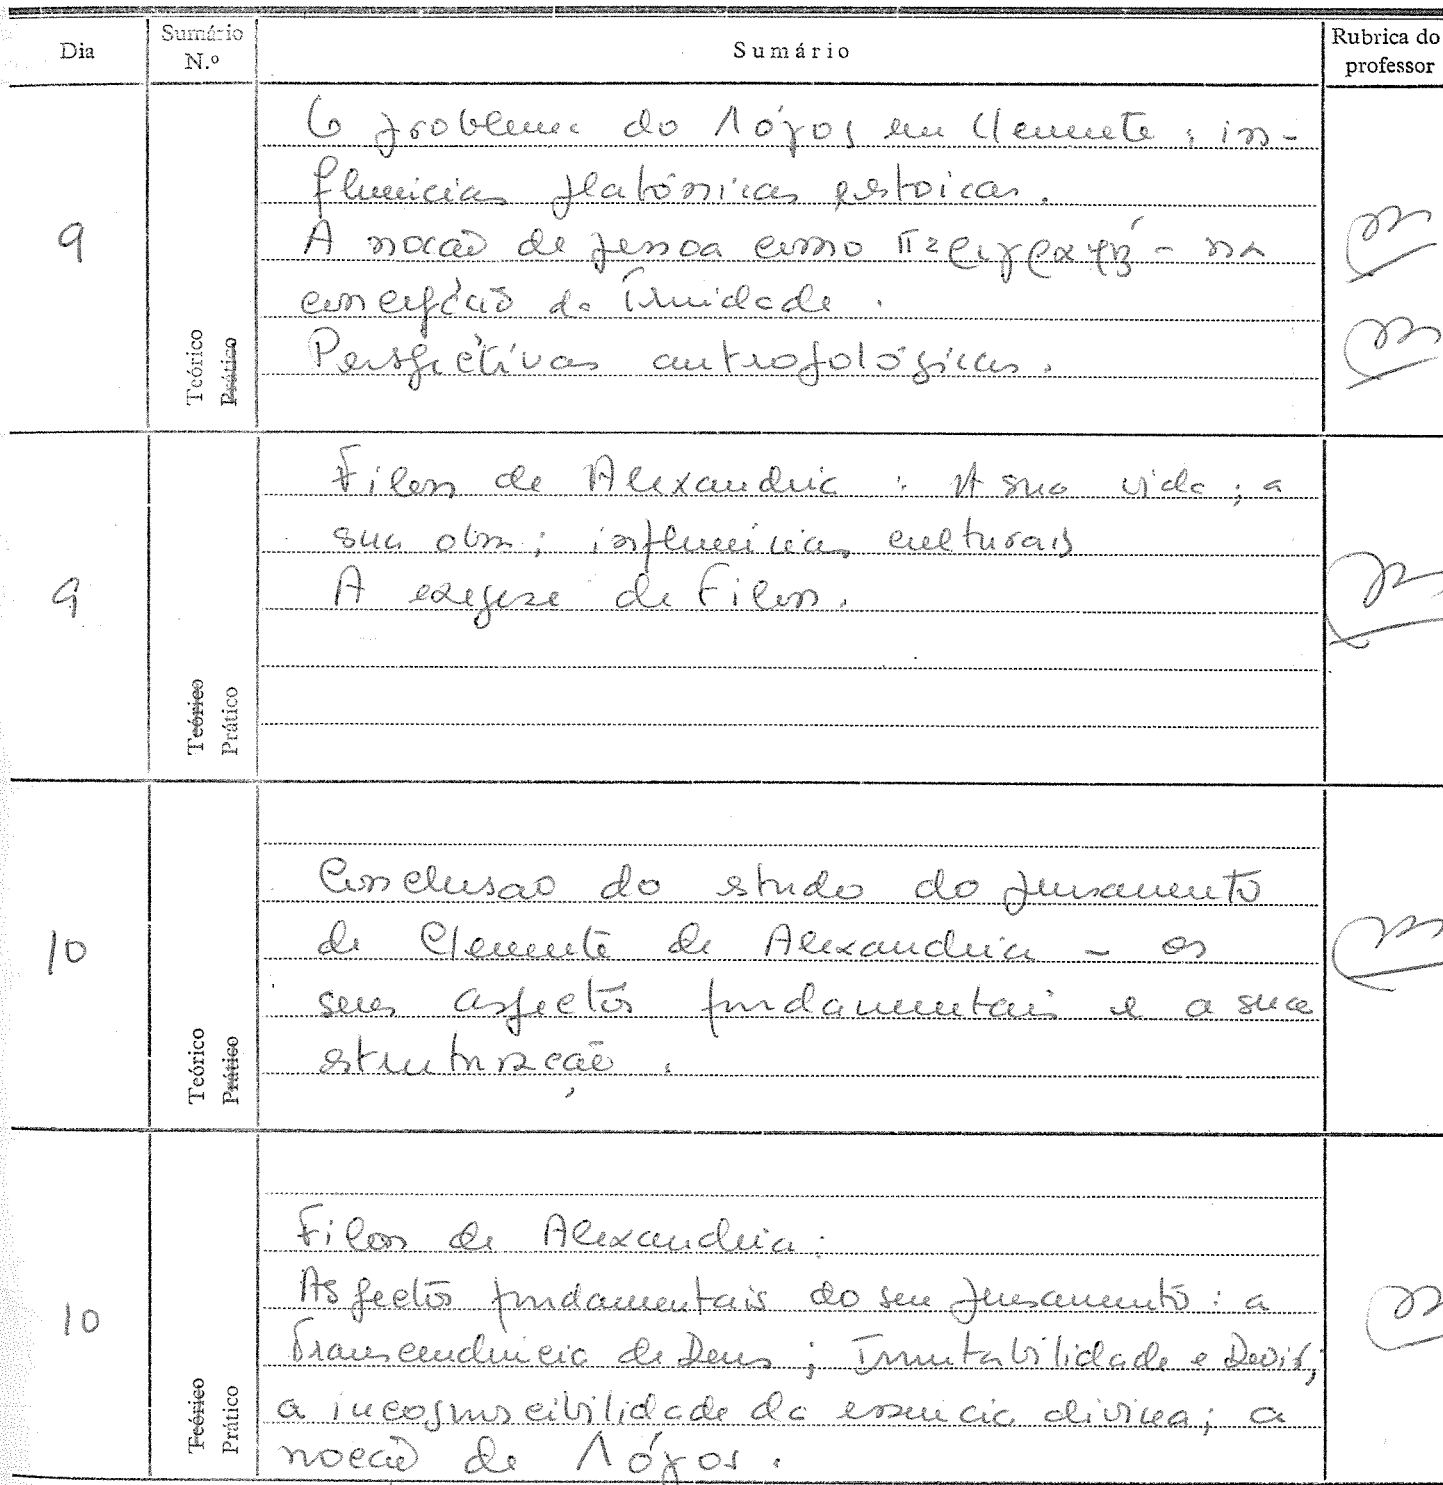 Dia
Sumário N.º
Sumário
Rubrica do professor
9
Teórico
Prático
O problema do Λόγος em Clemente: in-
fluências platónicas e estoicas.
A noção de pessoa como περιγραφή - na
concepção da Trindade.
Perspectivas antropológicas.
9
Teórico
Prático
Filon de Alexandria: A sua vida; a
sua obra; influências culturais
A exegese de Filon.
10
Teórico
Prático
Conclusão do estudo do pensamento
de Clemente de Alexandria - os
seus aspectos fundamentais e a sua
estruturação.
10
Teórico
Prático
Filon de Alexandria:
Aspectos fundamentais do seu pensamento: a
Transcendência de Deus; Imutabilidade e Devir;
a incognoscibilidade da essência divina; a
noção de Λόγος.